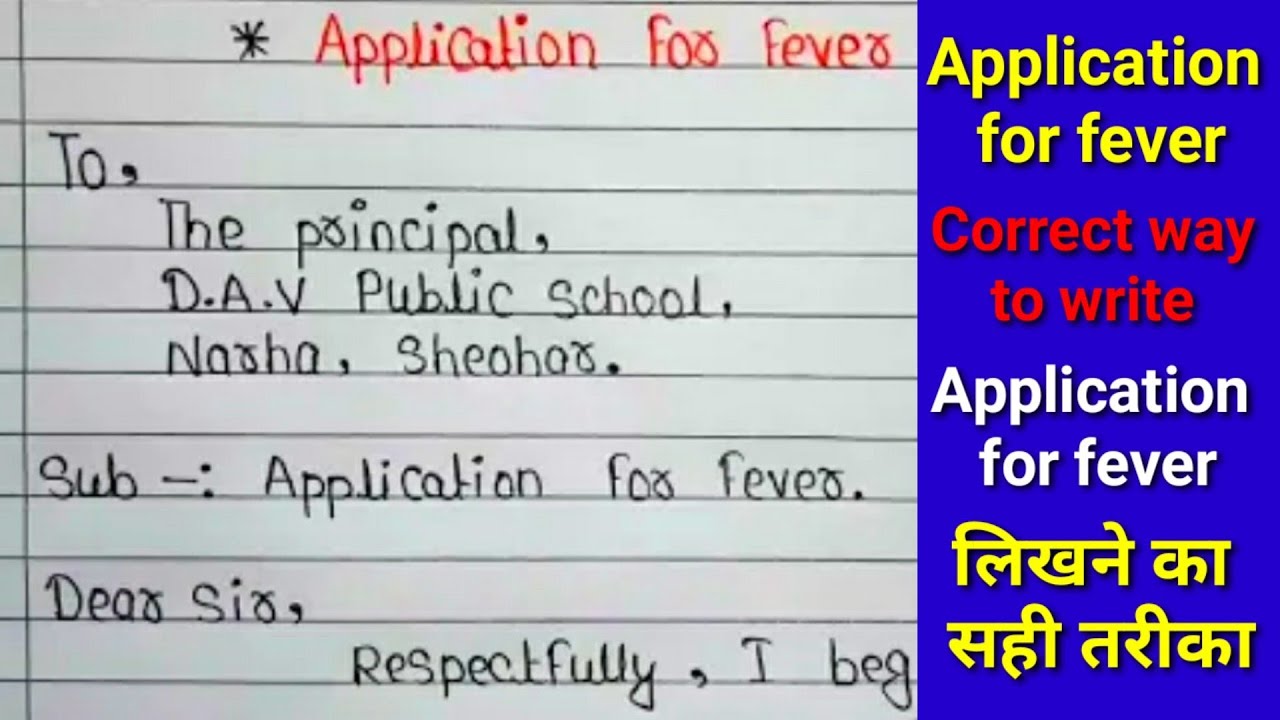 * Application For Fever
To,
The principal,
D.A.V Public School,
Narha, Sheohar.
Sub -: Application For Fever.
Dear Sir,
Respectfully, I beg
Application
for fever
Correct way
to write
Application
for fever
लिखने का
सही तरीका